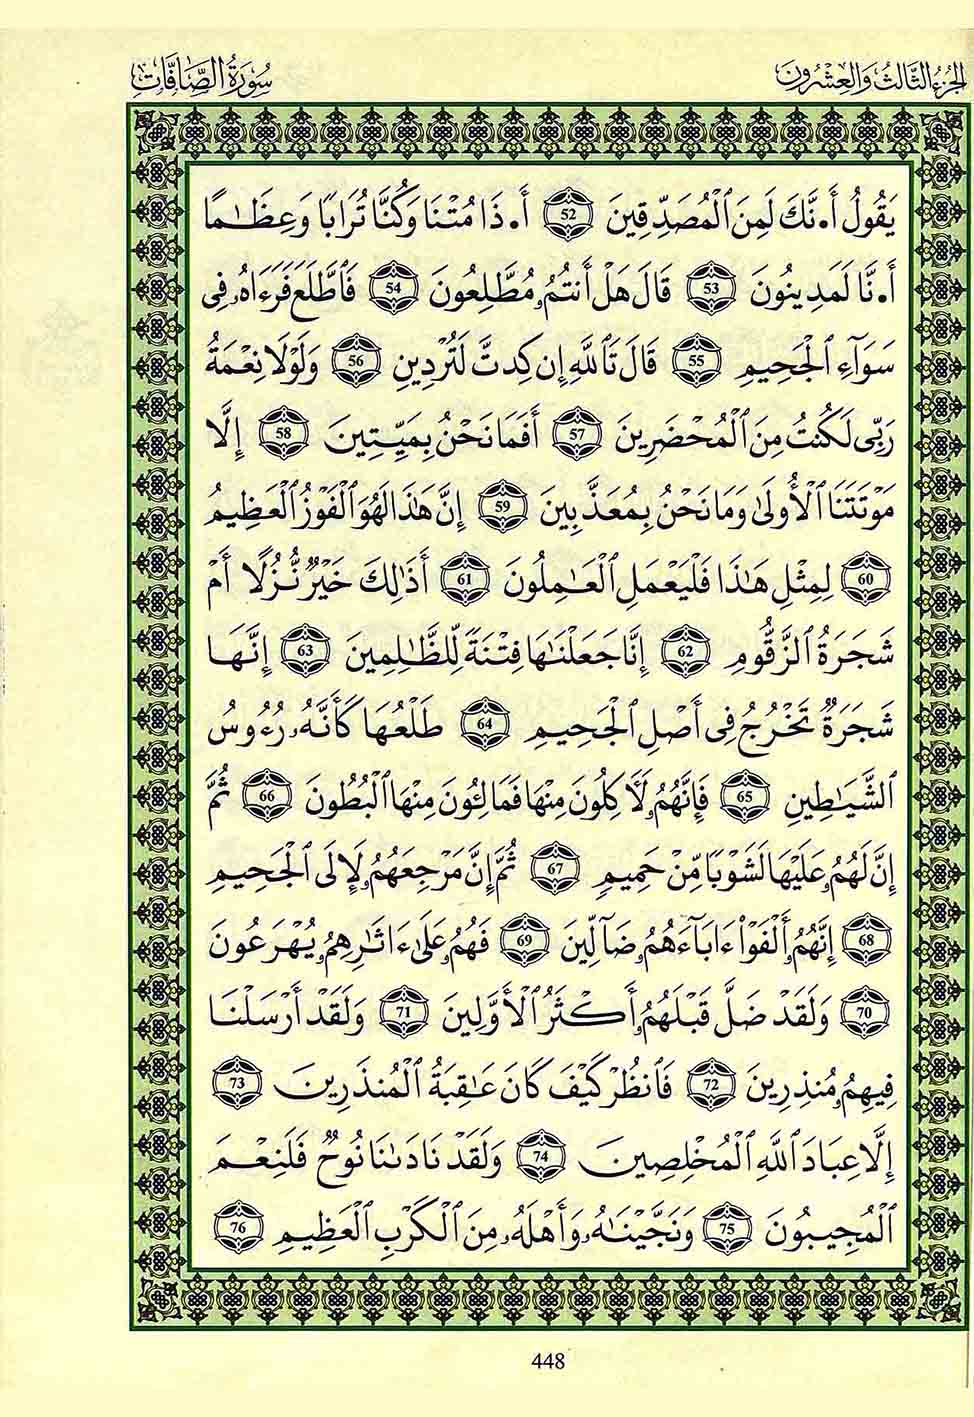 الجزء الثالث والعشرون
سورة الصافات
يَقُولُ أَ۟نَّكَ لَمِنَ ٱلْمُصَدِّقِينَ 52 أَ۟ذَا مُتْنَا وَكُنَّا تُرَابًا وَعِظَٰمًا
أَ۟نَّا لَمَدِينُونَ 53 قَالَ هَلْ أَنتُمُۥ مُطَّلِعُونَ 54 فَٱطَّلَعَ فَرَءَاهُ فِى
سَوَآءِ ٱلْجَحِيمِ 55 قَالَ تَٱللَّهِ إِن كِدتَّ لَتُرْدِينِ 56 وَلَوْلَا نِعْمَةُ
رَبِّى لَكُنتُ مِنَ ٱلْمُحْضَرِينَ 57 أَفَمَا نَحْنُ بِمَيِّتِينَ 58 إِلَّا
مَوْتَتَنَا ٱلْأُولَىٰ وَمَا نَحْنُ بِمُعَذَّبِينَ 59 إِنَّ هَٰذَا لَهْوَ ٱلْفَوْزُ ٱلْعَظِيمُ
60 لِمِثْلِ هَٰذَا فَلْيَعْمَلِ ٱلْعَٰمِلُونَ 61 أَذَٰلِكَ خَيْرٌ نُّزُلًا أَمْ
شَجَرَةُ ٱلزَّقُّومِ 62 إِنَّا جَعَلْنَٰهَا فِتْنَةً لِّلظَّٰلِمِينَ 63 إِنَّهَا
شَجَرَةٌ تَخْرُجُ فِى أَصْلِ ٱلْجَحِيمِ 64 طَلْعُهَا كَأَنَّهُۥ رُءُوسُ
ٱلشَّيَٰطِينِ 65 فَإِنَّهُمُۥ لَأٓكِلُونَ مِنْهَا فَمَالِـُٔونَ مِنْهَا ٱلْبُطُونَ 66 ثُمَّ
إِنَّ لَهُمُۥ عَلَيْهَا لَشَوْبًا مِّنْ حَمِيمٍ 67 ثُمَّ إِنَّ مَرْجِعَهُمُۥ لَإِلَى ٱلْجَحِيمِ
68 إِنَّهُمُۥ أَلْفَوْا۟ ءَابَآءَهُمُۥ ضَآلِّينَ 69 فَهُمُۥ عَلَىٰ ءَاثَٰرِهِمُۥ يُهْرَعُونَ
70 وَلَقَدْ ضَلَّ قَبْلَهُمُۥ أَكْثَرُ ٱلْأَوَّلِينَ 71 وَلَقَدْ أَرْسَلْنَا
فِيهِمُۥ مُنذِرِينَ 72 فَٱنظُرْ كَيْفَ كَانَ عَٰقِبَةُ ٱلْمُنذَرِينَ 73
إِلَّا عِبَادَ ٱللَّهِ ٱلْمُخْلِصِينَ 74 وَلَقَدْ نَادَىٰنَا نُوحٌ فَلَنِعْمَ
ٱلْمُجِيبُونَ 75 وَنَجَّيْنَٰهُۥ وَأَهْلَهُۥ مِنَ ٱلْكَرْبِ ٱلْعَظِيمِ 76
448